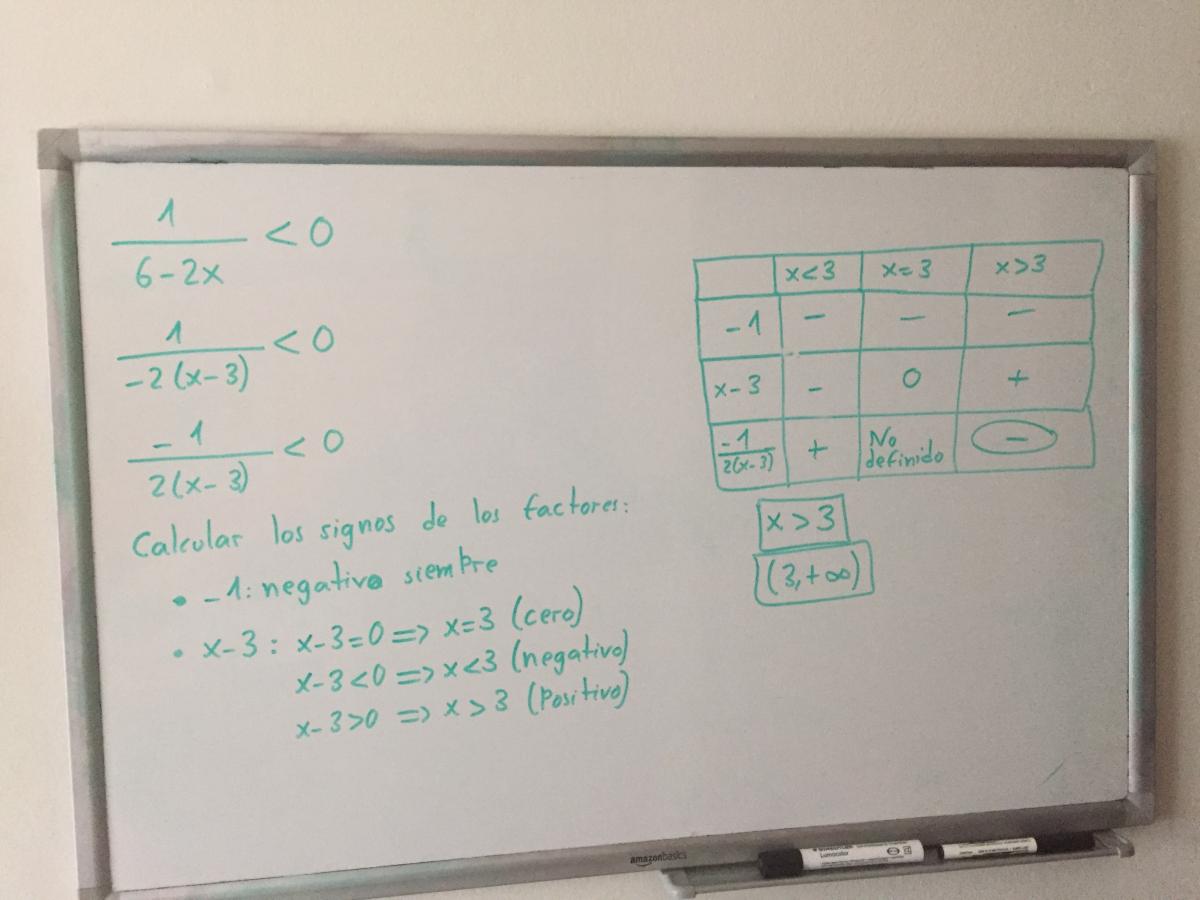 1
6-2x < 0
1
-2(x-3) < 0
-1
2(x-3) < 0
Calcular los signos de los factores:
• -1: negativo siempre
• x-3: x-3=0 => x=3 (cero)
x-3<0 => x<3 (negativo)
x-3>0 => x>3 (Positivo)
x<3 x=3 x>3
-1 - - -
x-3 - 0 +
-1
2(x-3) + No definido -
x>3
(3,+∞)
amazonbasics
Lumocolor